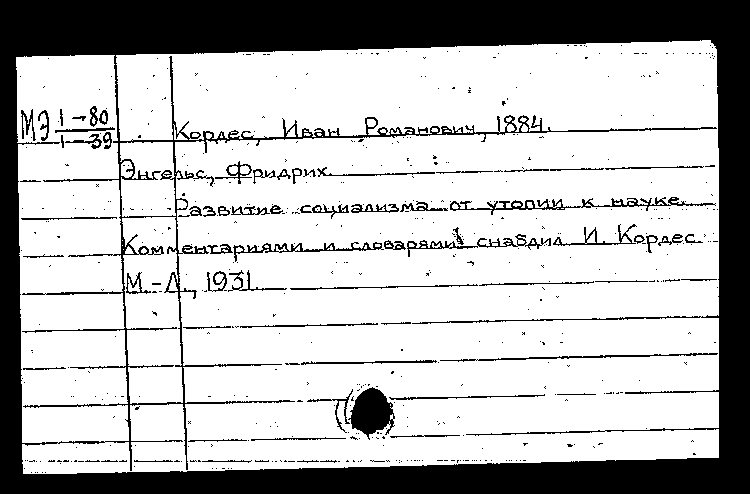 МЭ 1-80
1-39
Кордес, Иван Романович, 1884.
Энгельс, Фридрих.
Развитие социализма от утопии к науке.
Комментариями и словарями снабдил И. Кордес.
М.-Л., 1931.